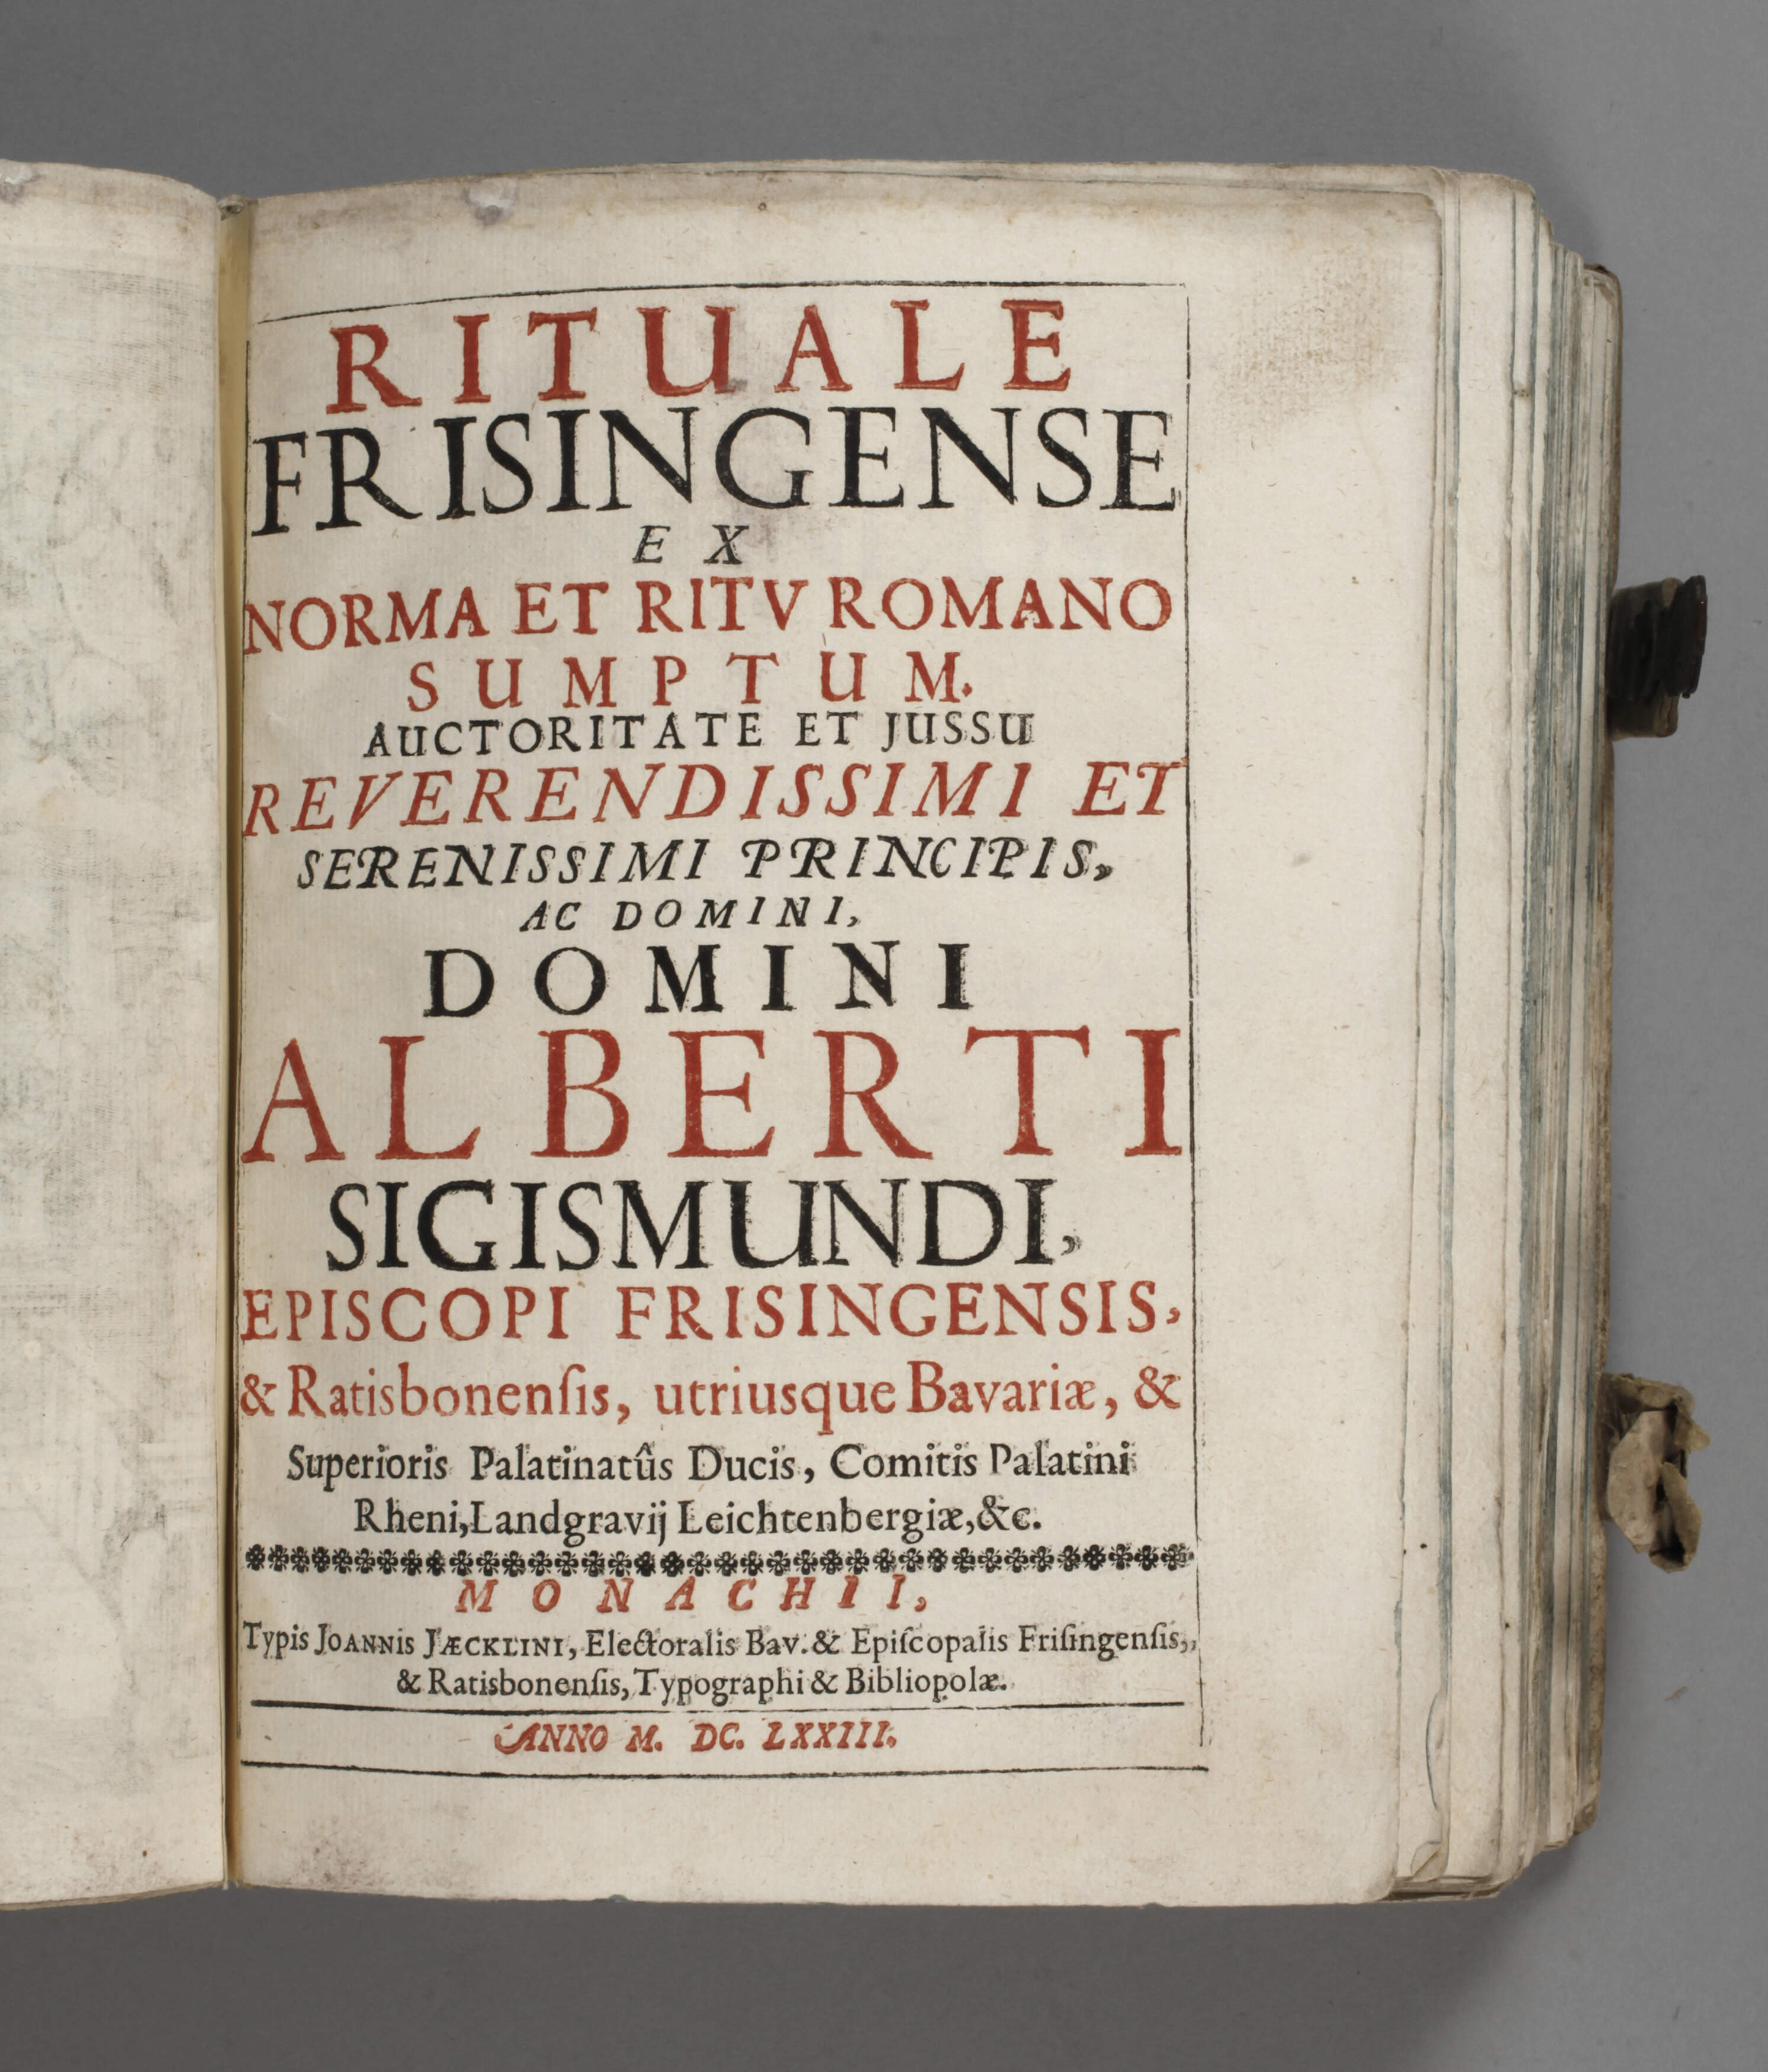 RITUALE
FRISINGENSE
EX
NORMA ET RITV ROMANO
SUMPTUM.
AUCTORITATE ET JUSSU
REVERENDISSIMI ET
SERENISSIMI PRINCIPIS,
AC DOMINI,
DOMINI
ALBERTI
SIGISMUNDI,
EPISCOPI FRISINGENSIS,
& Ratisbonenſis, utriusque Bavariæ, &
Superioris Palatinatûs Ducis, Comitis Palatini
Rheni, Landgravij Leichtenbergiæ, &c.
MONACHII,
Typis JOANNis JÆCKLINI, Electoralis Bav. & Epiſcopalis Friſingenſis,,
& Ratisbonenſis, Typographi & Bibliopolæ.
ANNO M. DC. LXXIII.